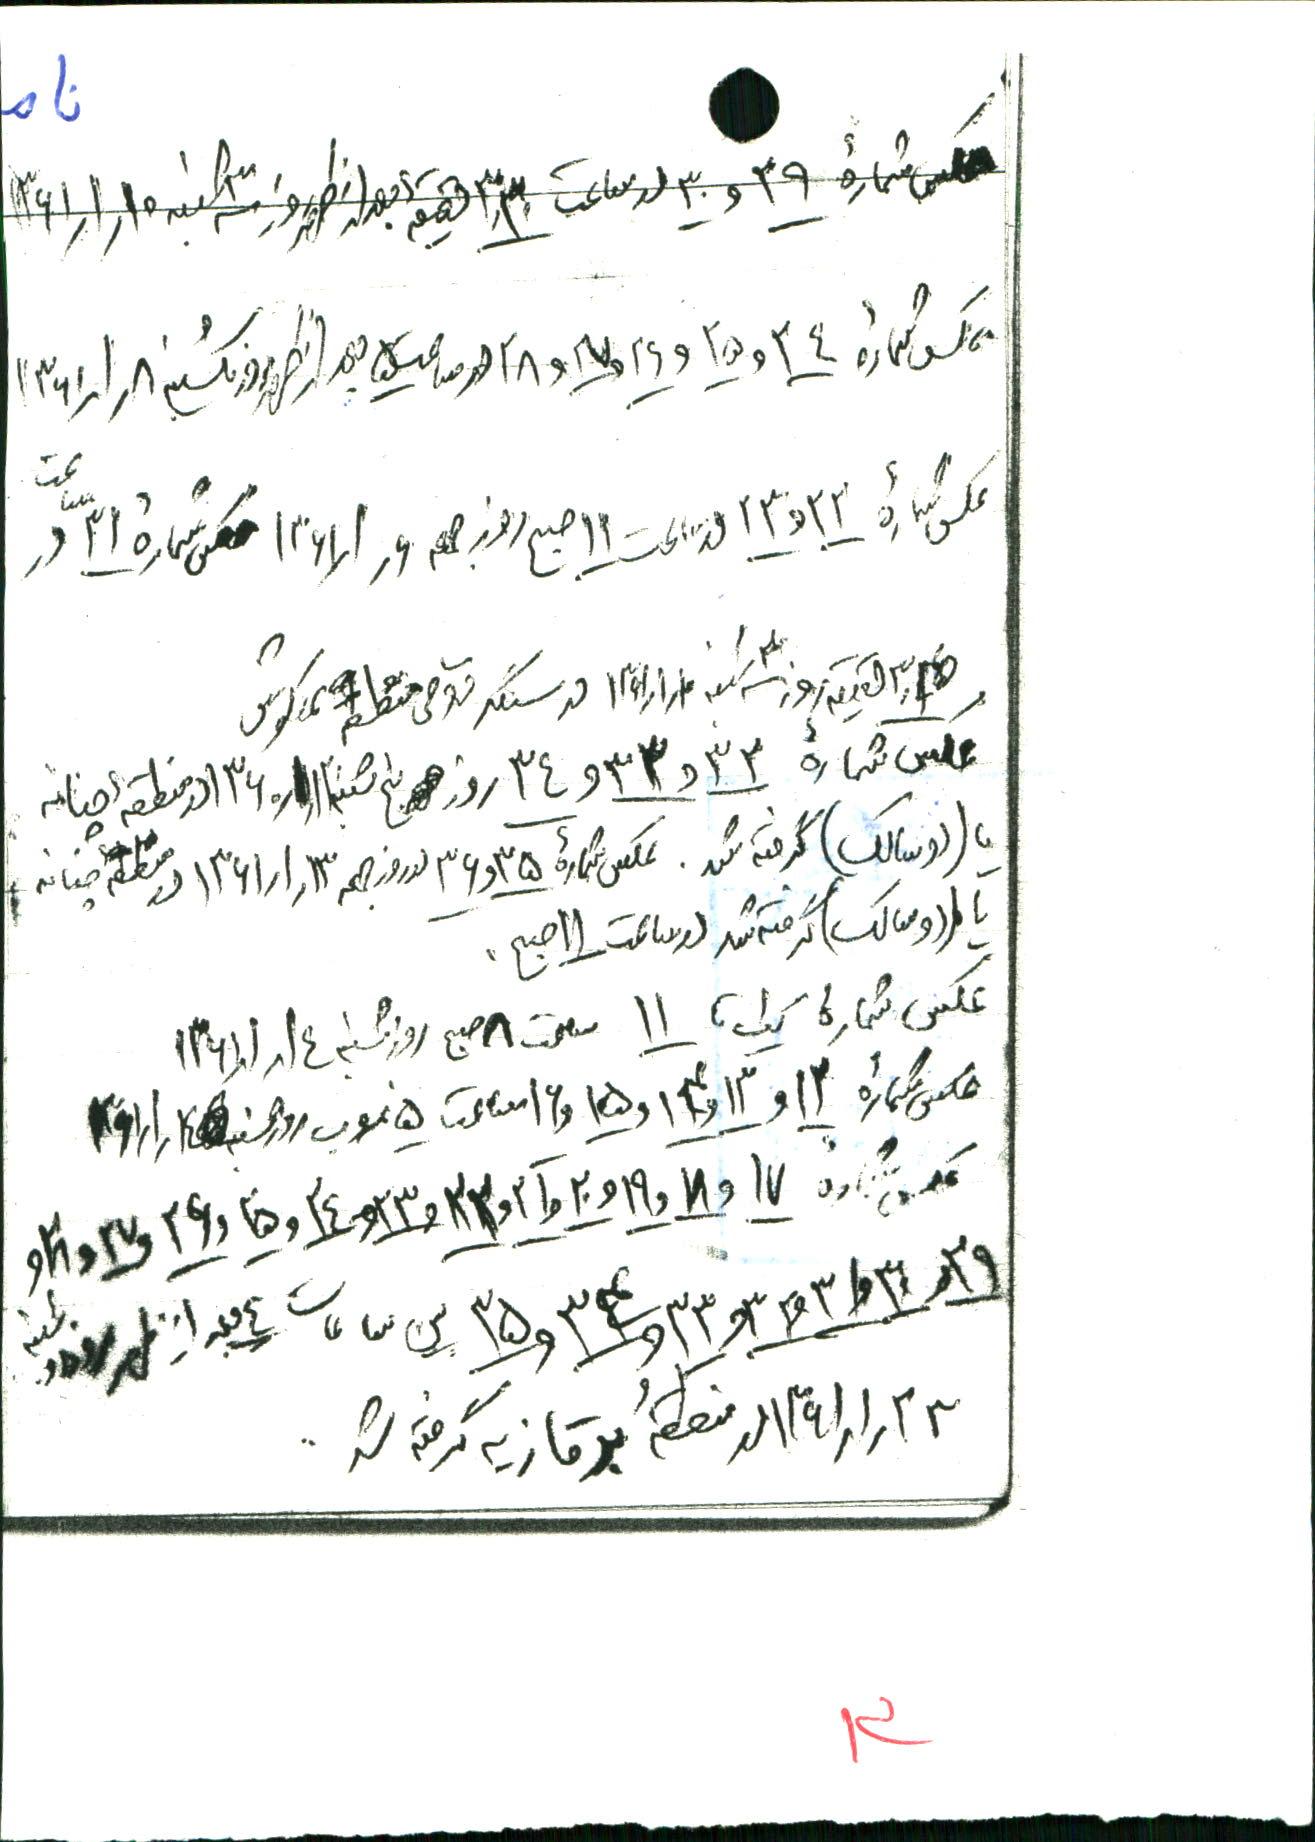 نامه
عکس شمارهٔ ۲۹ و ۳۰ در ساعت دقیقهٔ بعد از ظهر روز سه‌شنبه ۱۰ر۱ر۱۳۶۱
عکس شمارهٔ ۲٤ و ۲۵ و ۲۶ و ۲۷ و ۲۸ در ساعت ۵ بعد از ظهر روز یکشنبه ۸ر۱ر۱۳۶۱
عکس شمارهٔ ۲۲ و ۲۳ در ساعت ۱۱ صبح روز جمعه ۶ر۱ر۱۳۶۱ عکس شمارهٔ ۳۱ در ساعت
دقیقه روز سه‌شنبه ۱۰ر۱ر۱۳۶۱ در سنگر منطقه
عکس شمارهٔ ۳۲ و ۳۳ و ۳٤ روز پنج شنبه ۱۳۶۱ در منطقهٔ چنانه
یا (دوسالک) گرفته شد. عکس شمارهٔ ۳۵ و ۳۶ در روز جمعه ۱۳ر۱ر۱۳۶۱ در منطقهٔ چنانه
یا (دوسالک) گرفته شد در ساعت ۱۱ صبح.
عکس شمارهٔ یک تا ۱۱ ساعت ۸ صبح روز شنبه ۱٤ر۱ر۱۳۶۱
عکس شمارهٔ ۱۲ و ۱۳ و ۱۴ و ۱۵ و ۱۶ ساعت ۵ غروب روز شنبه ر۱ر۱۳۶۱
عکس شمارهٔ ۱۷ و ۱۸ و ۱۹ و ۲۰ و ۲۱ و ۲۲ و ۲۳ و ۲٤ و ۲۵ و ۲۶ و ۲۷ و ۲۸ و
۲۹ و ۳۰ و ۳۱ و ۳۲ و ۳۳ و ۳۴ و ۳۵ ساعت ٤ بعد از ظهر روز دوشنبه
۲۳ر۱ر۱۳۶۱ در منطقهٔ برقازیه گرفته شد..
۲